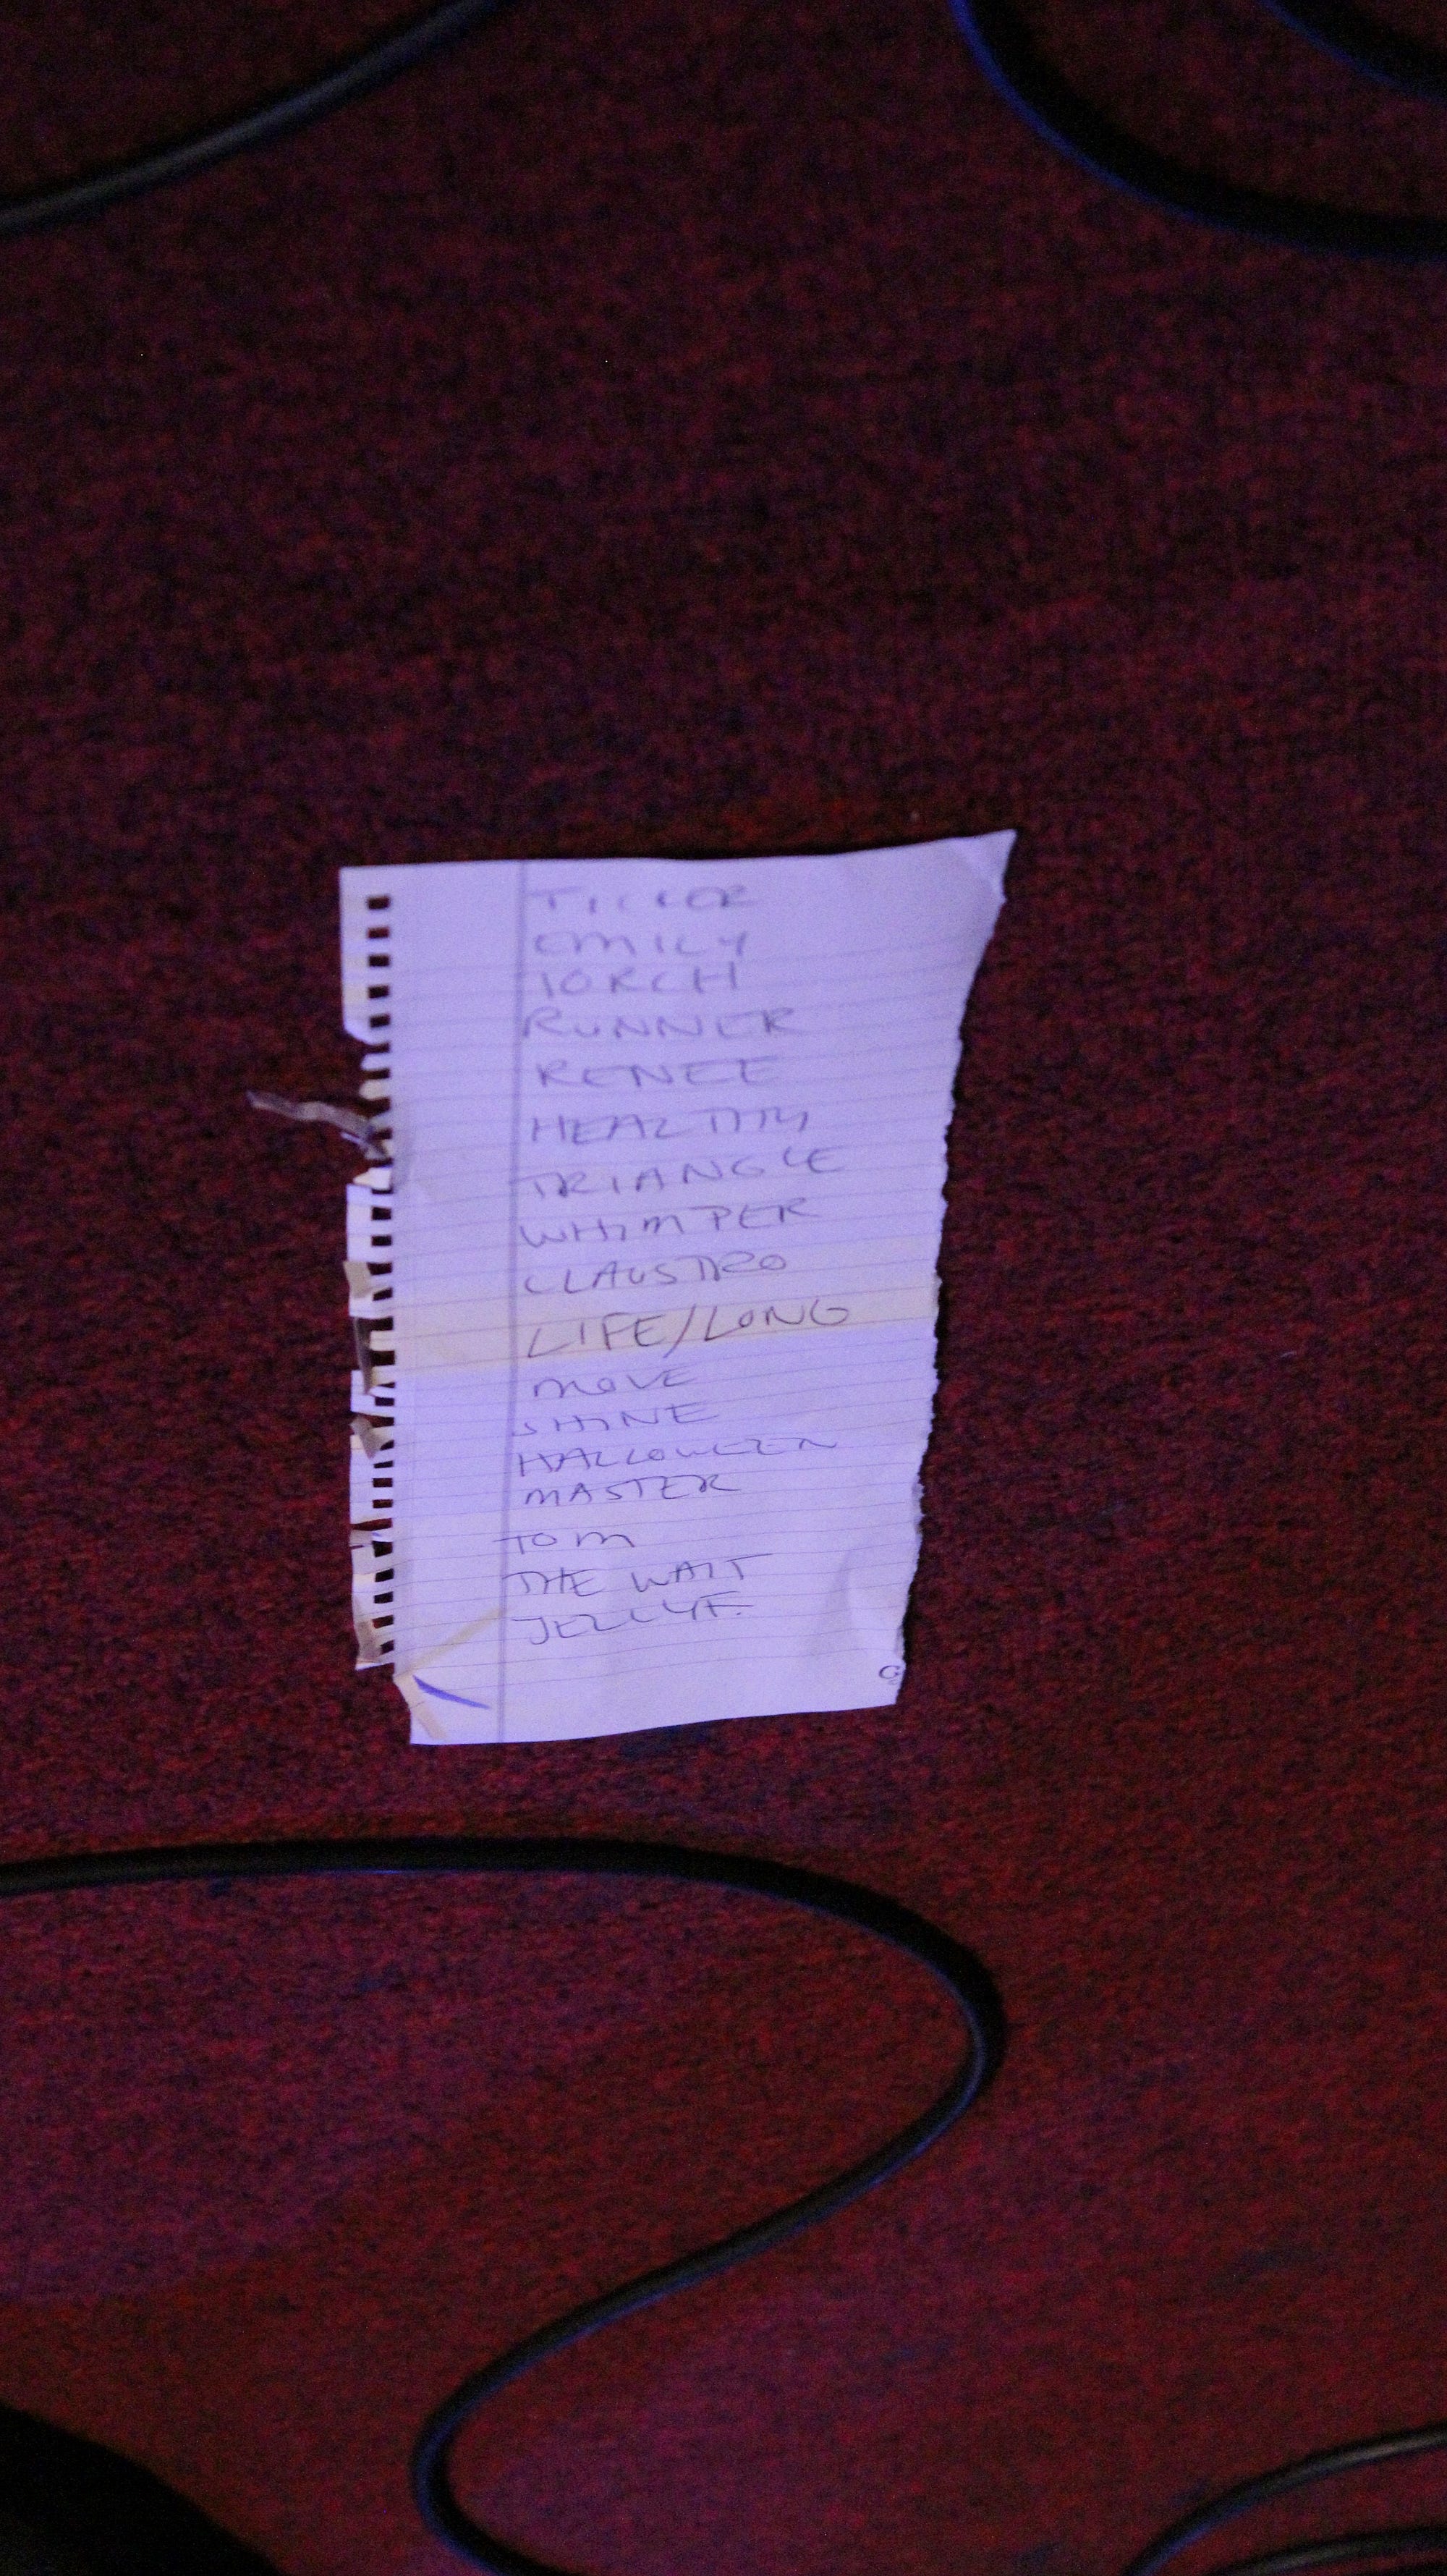 EMILY
TORCH
RUNNER
RENEE
HEALTHY
TRIANGLE
WHIMPER
CLAUSTRO
LIFE/LONG
MOVE
SHINE
HALLOWEEN
MASTER
TOM
THE WAIT
JELLYF.